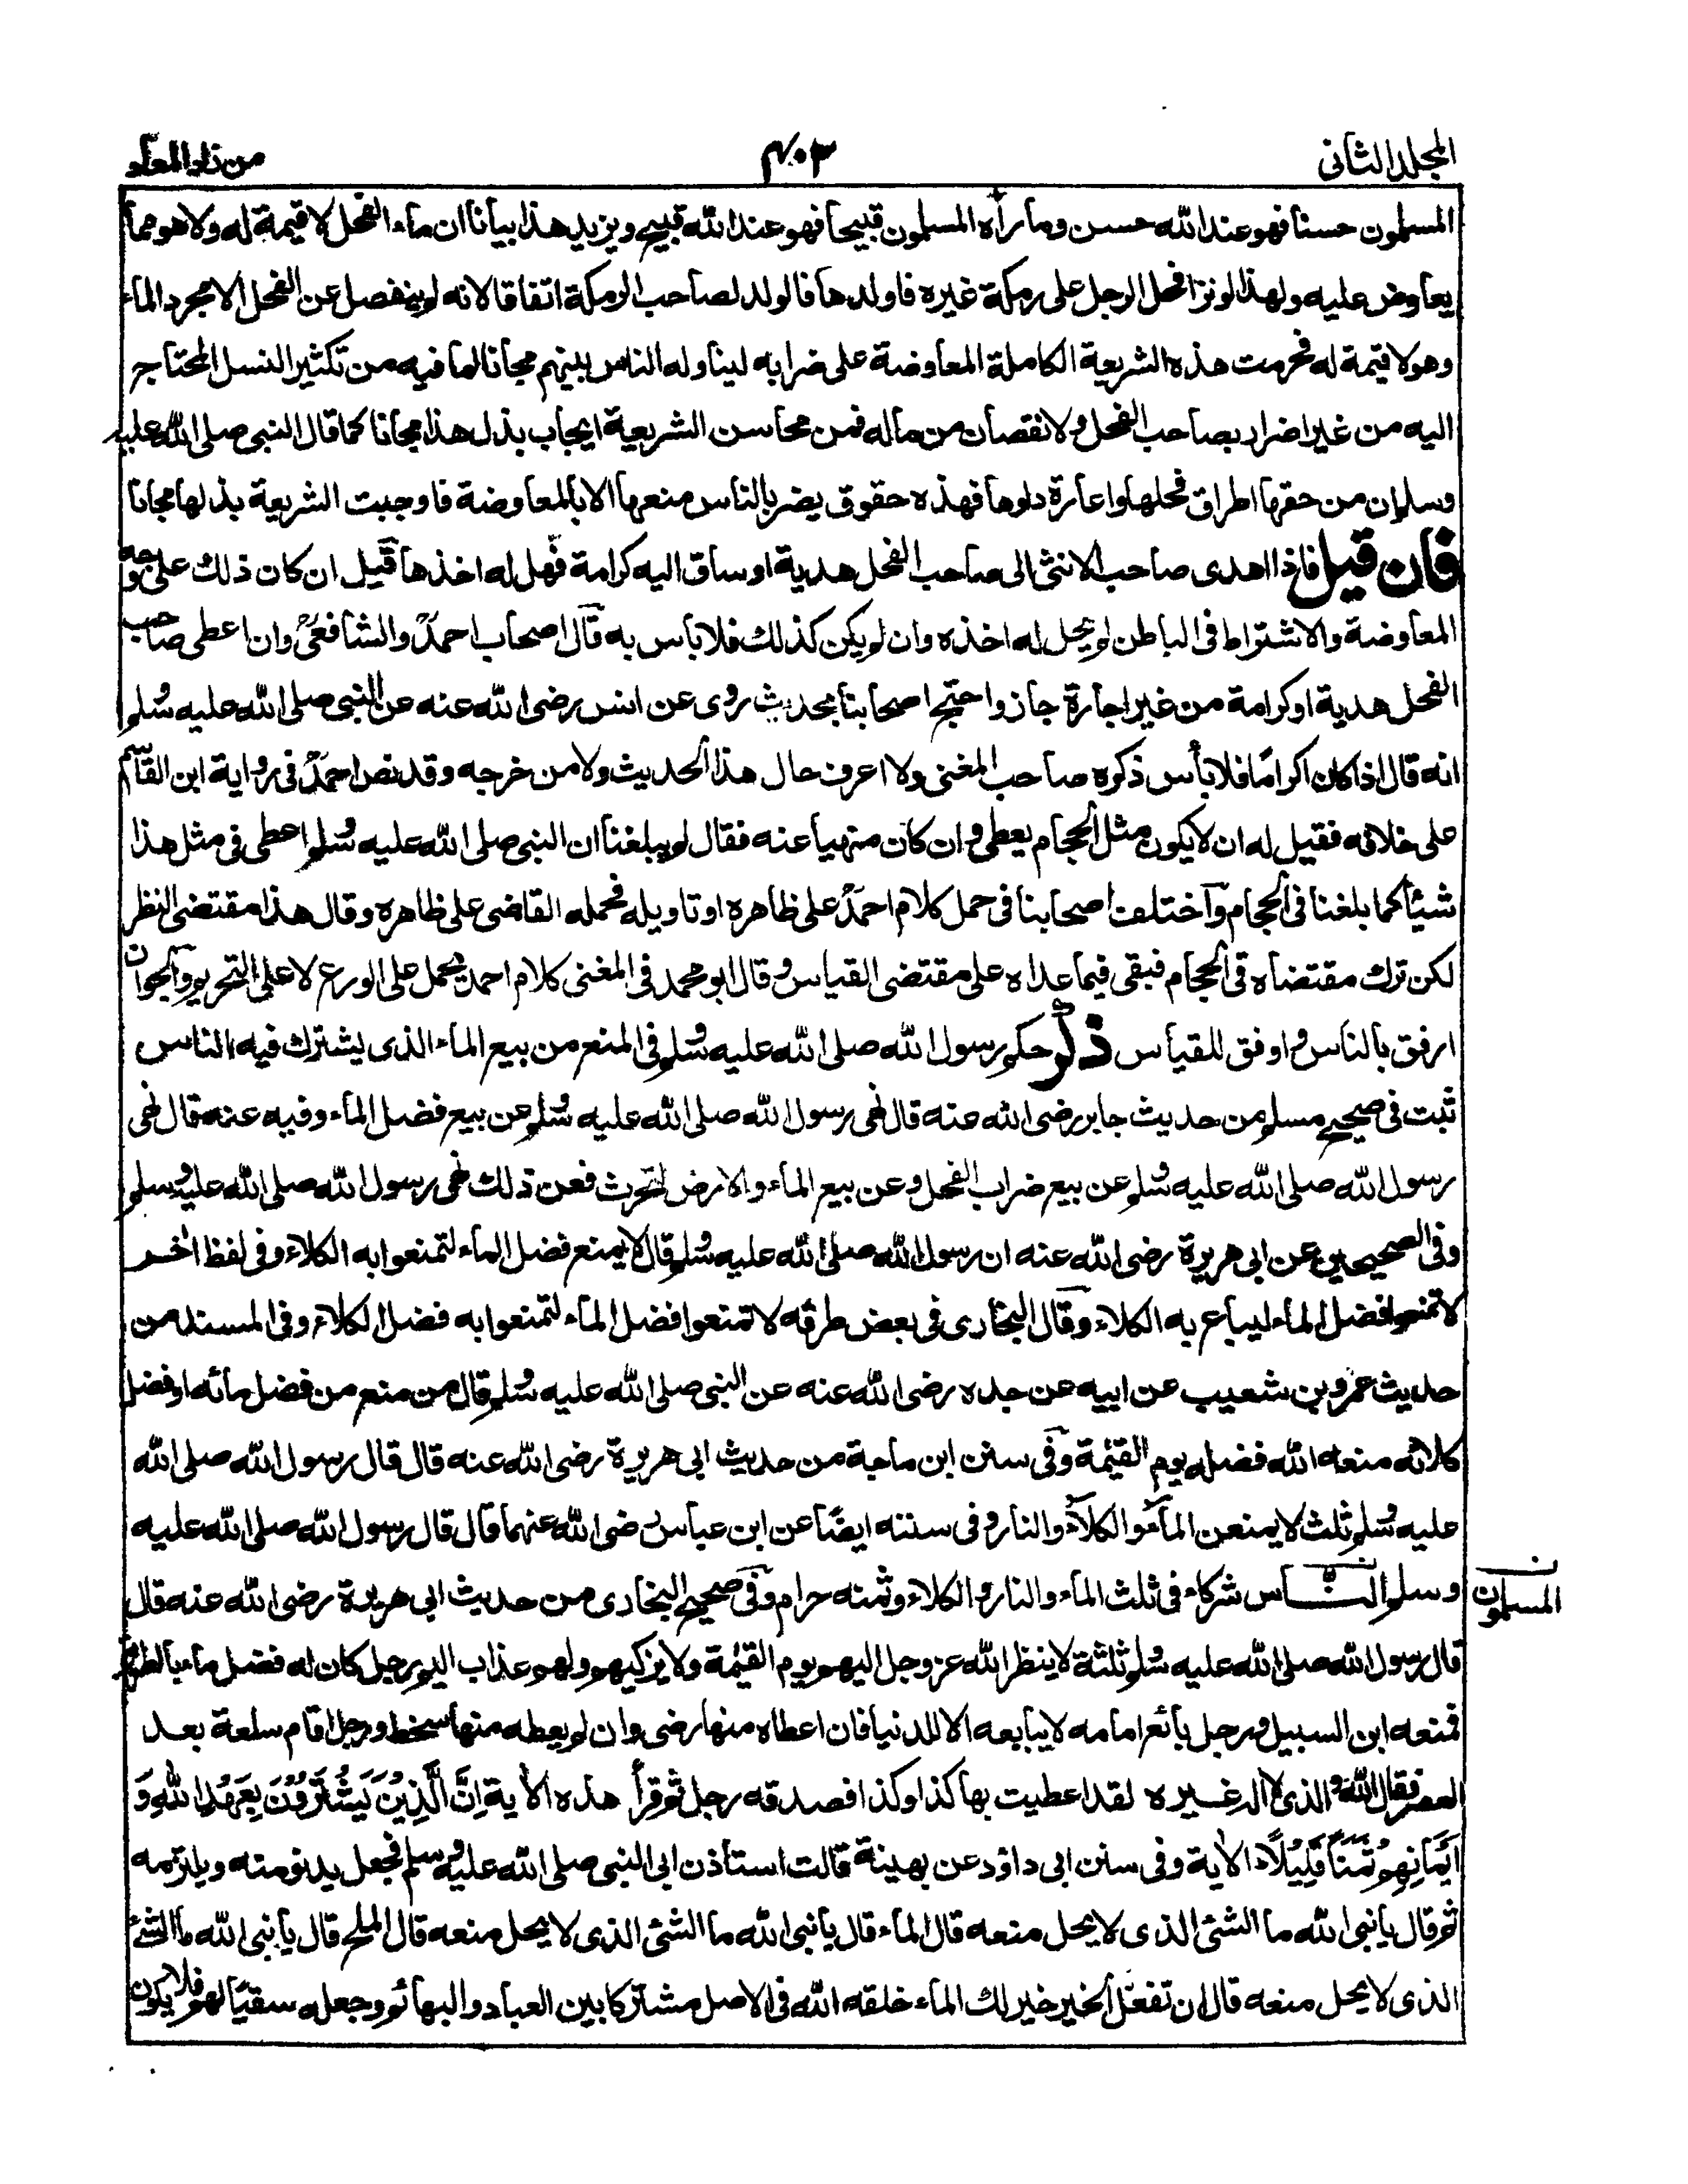 المجلد الثانى
٤٠٣
من زاد المعاد
المسلمون حسنا فهو عند الله حسن وما رأه المسلمون قبيحا فهو عند الله قبيح ويزيد هذا بيانا ان ماء الفحل لا قيمة له ولا هو مما
يعاوض عليه ولهذا لو نزا فحل الرجل على رمكة غيره فاولدها فالولد لصاحب الرمكة اتفاقا لانه لم ينفصل عن الفحل الا مجرد الماء
وهو لا قيمة له فحرمت هذه الشريعة الكاملة المعاوضة على ضرابه ليناوله الناس بينهم مجانا لما فيه من تكثير النسل المحتاج
اليه من غير اضرار بصاحب الفحل ولا نقصان من ماله فمن محاسن الشريعة ايجاب بذل هذا مجانا كما قال النبى صلى الله عليه
وسلم ان من حقها اطراق فحلها واعارة دلوها فهذه حقوق يضر بالناس منعها الا بالمعاوضة فاوجبت الشريعة بذلها مجانا
فان قيل فاذا اهدى صاحب الانثى الى صاحب الفحل هدية او ساق اليه كرامة فهل له اخذها قيل ان كان ذلك على وجه
المعاوضة والاشتراط فى الباطن لم يحل له اخذه وان لم يكن كذلك فلا باس به قال اصحاب احمد والشافعى وان اعطى صاحب
الفحل هدية او كرامة من غير اجارة جاز واحتج اصحابنا بحديث روى عن انس رضى الله عنه عن النبى صلى الله عليه وسلم
انه قال اذا كان اكراما فلا بأس ذكره صاحب المغنى ولا اعرف حال هذا الحديث ولا من خرجه وقد نص احمد فى رواية ابن القاسم
على خلافه فقيل له ان لا يكون مثل الحجام يعطى وان كان منهيا عنه فقال لم يبلغنا ان النبى صلى الله عليه وسلم اعطى فى مثل هذا
شيئا كما بلغنا فى الحجام واختلف اصحابنا فى حمل كلام احمد على ظاهره او تاويله فحمله القاضى على ظاهره وقال هذا مقتضى النظر
لكن ترك مقتضاه فى الحجام فبقى فيما عداه على مقتضى القياس وقال ابو محمد فى المغنى كلام احمد يحمل على الورع لا على التحريم والجواز
ارفق بالناس واوفق للقياس ذكر حكم رسول الله صلى الله عليه وسلم فى المنع من بيع الماء الذى يشترك فيه الناس
ثبت فى صحيح مسلم من حديث جابر رضى الله عنه قال نهى رسول الله صلى الله عليه وسلم عن بيع فضل الماء وفيه عنه قال نهى
رسول الله صلى الله عليه وسلم عن بيع ضراب الفحل وعن بيع الماء والارض لتحرث فعن ذلك نهى رسول الله صلى الله عليه وسلم
وفى الصحيحين عن ابى هريرة رضى الله عنه ان رسول الله صلى الله عليه وسلم قال لا يمنع فضل الماء لتمنعوا به الكلاء وفى لفظ اخر
لا تمنعوا فضل الماء ليباع به الكلاء وقال البخارى فى بعض طرقه لا تمنعوا فضل الماء لتمنعوا به فضل الكلاء وفى المسند من
حديث عمرو بن شعيب عن ابيه عن جده رضى الله عنه عن النبى صلى الله عليه وسلم قال من منع من فضل مائه او فضل
كلائه منعه الله فضله يوم القيمة وفى سنن ابن ماجة من حديث ابى هريرة رضى الله عنه قال قال رسول الله صلى الله
عليه وسلم ثلث لا يمنعن الماء والكلاء والنار وفى سننه ايضا عن ابن عباس رضى الله عنهما قال قال رسول الله صلى الله عليه
وسلم الناس شركاء فى ثلث الماء والنار والكلاء وثمنه حرام وفى صحيح البخارى من حديث ابى هريرة رضى الله عنه قال
ن المسلمون
قال رسول الله صلى الله عليه وسلم ثلثة لا ينظر الله عز وجل اليهم يوم القيمة ولا يزكيهم ولهم عذاب اليم رجل كان له فضل ماء بالطريق
فمنعه ابن السبيل ورجل بائع امامه لا يبايعه الا للدنيا فان اعطاه منها رضى وان لم يعطه منها سخط ورجل اقام سلعة بعد
العصر فقال الله والذى لا اله غيره لقد اعطيت بها كذا وكذا فصدقه رجل ثم قرأ هذه الأية اِنَّ الَّذِيْنَ يَشْتَرُوْنَ بِعَهْدِ اللهِ وَ
اَيْمَانِهِمْ ثَمَنًا قَلِيْلًا الأية وفى سنن ابى داؤد عن بهينة قالت استأذن ابى النبى صلى الله عليه وسلم فجعل يدنو منه ويلتزمه
ثم قال يا نبى الله ما الشئ الذى لا يحل منعه قال الماء قال يا نبى الله ما الشئ الذى لا يحل منعه قال الملح قال يا نبى الله ما الشئ
الذى لا يحل منعه قال ان تفعل الخير خير لك الماء خلقه الله فى الاصل مشتركا بين العباد والبهائم وجعله سقيا لهم فلا يكون